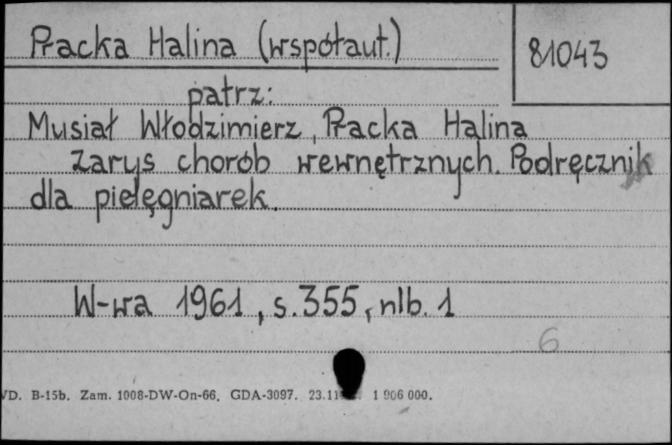 Płacka Halina (współaut.)
81043
patrz:
Musiał Włodzimierz, Płacka Halina
Zarys chorób wewnętrznych. Podręcznik
dla pielęgniarek.
W-wa 1961, s. 355, nlb. 1
6
VD. B-15b. Zam. 1008-DW-On-66. GDA-3097. 1 906 000.